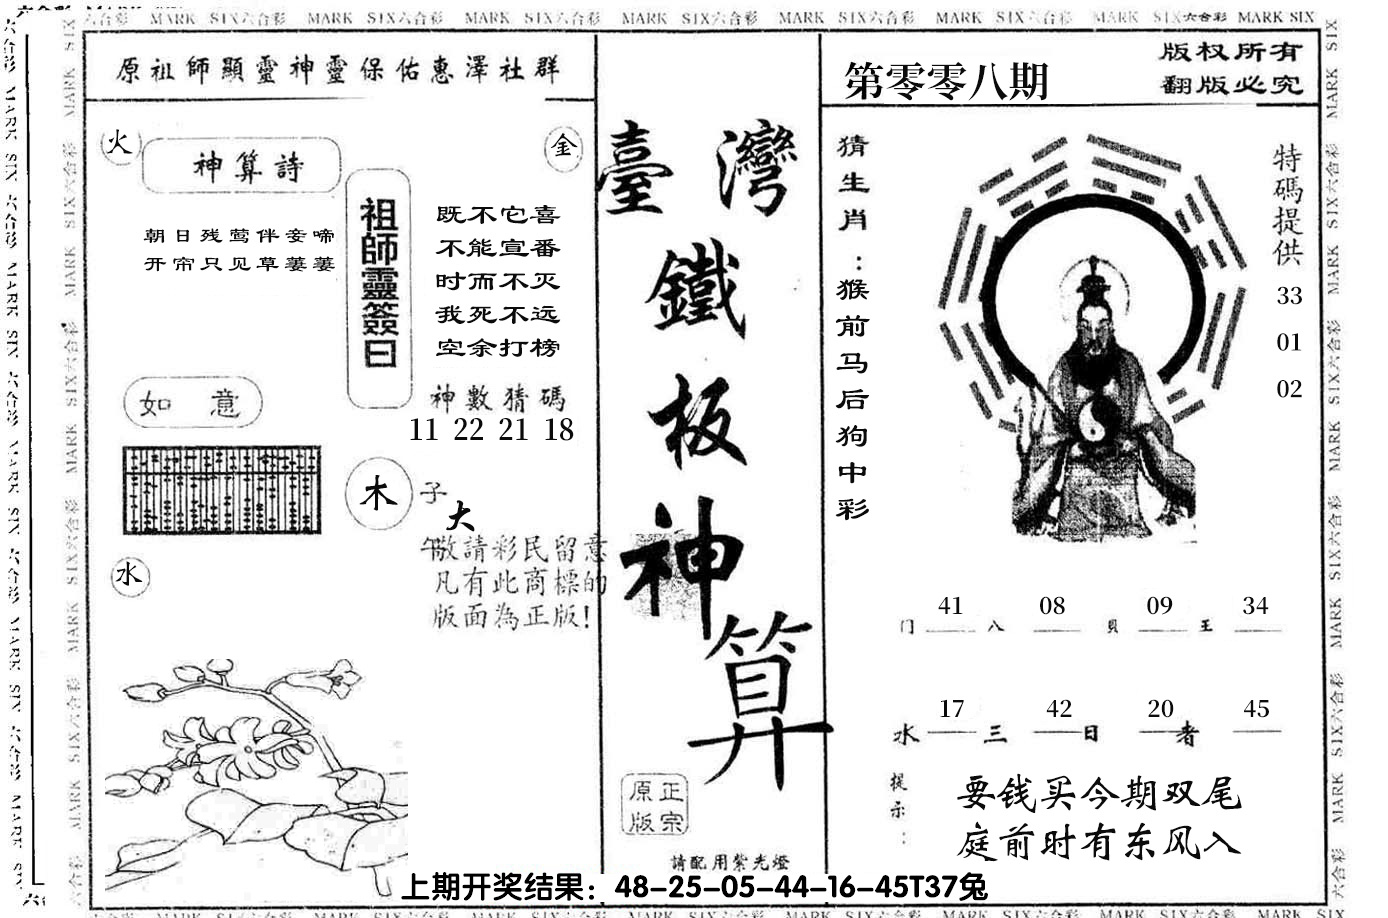 MARK SIX六合彩 MARK SIX六合彩 MARK SIX六合彩 MARK SIX六合彩 MARK SIX六合彩 MARK SIX六合彩 MARK SIX六合彩 MARK SIX
原祖師顯靈神靈保佑惠澤社群
火
金
神算詩
朝日残莺伴妾啼
开帘只见草萋萋
祖師靈簽曰
既不它喜
不能宣番
时而不灭
我死不远
空余打榜
神數猜碼
11 22 21 18
如意
木
子
大
午
水
敬請彩民留意
凡有此商標的
版面為正版!
臺灣
鐵
板
神
算
正宗
原版
請配用紫光燈
第零零八期
版权所有
翻版必究
猜生肖:猴前马后狗中彩
特碼提供
33
01
02
41 08 09 34
门 八 贝 王
17 42 20 45
水 三 日 者
提示:
要钱买今期双尾
庭前时有东风入
上期开奖结果：48-25-05-44-16-45T37兔